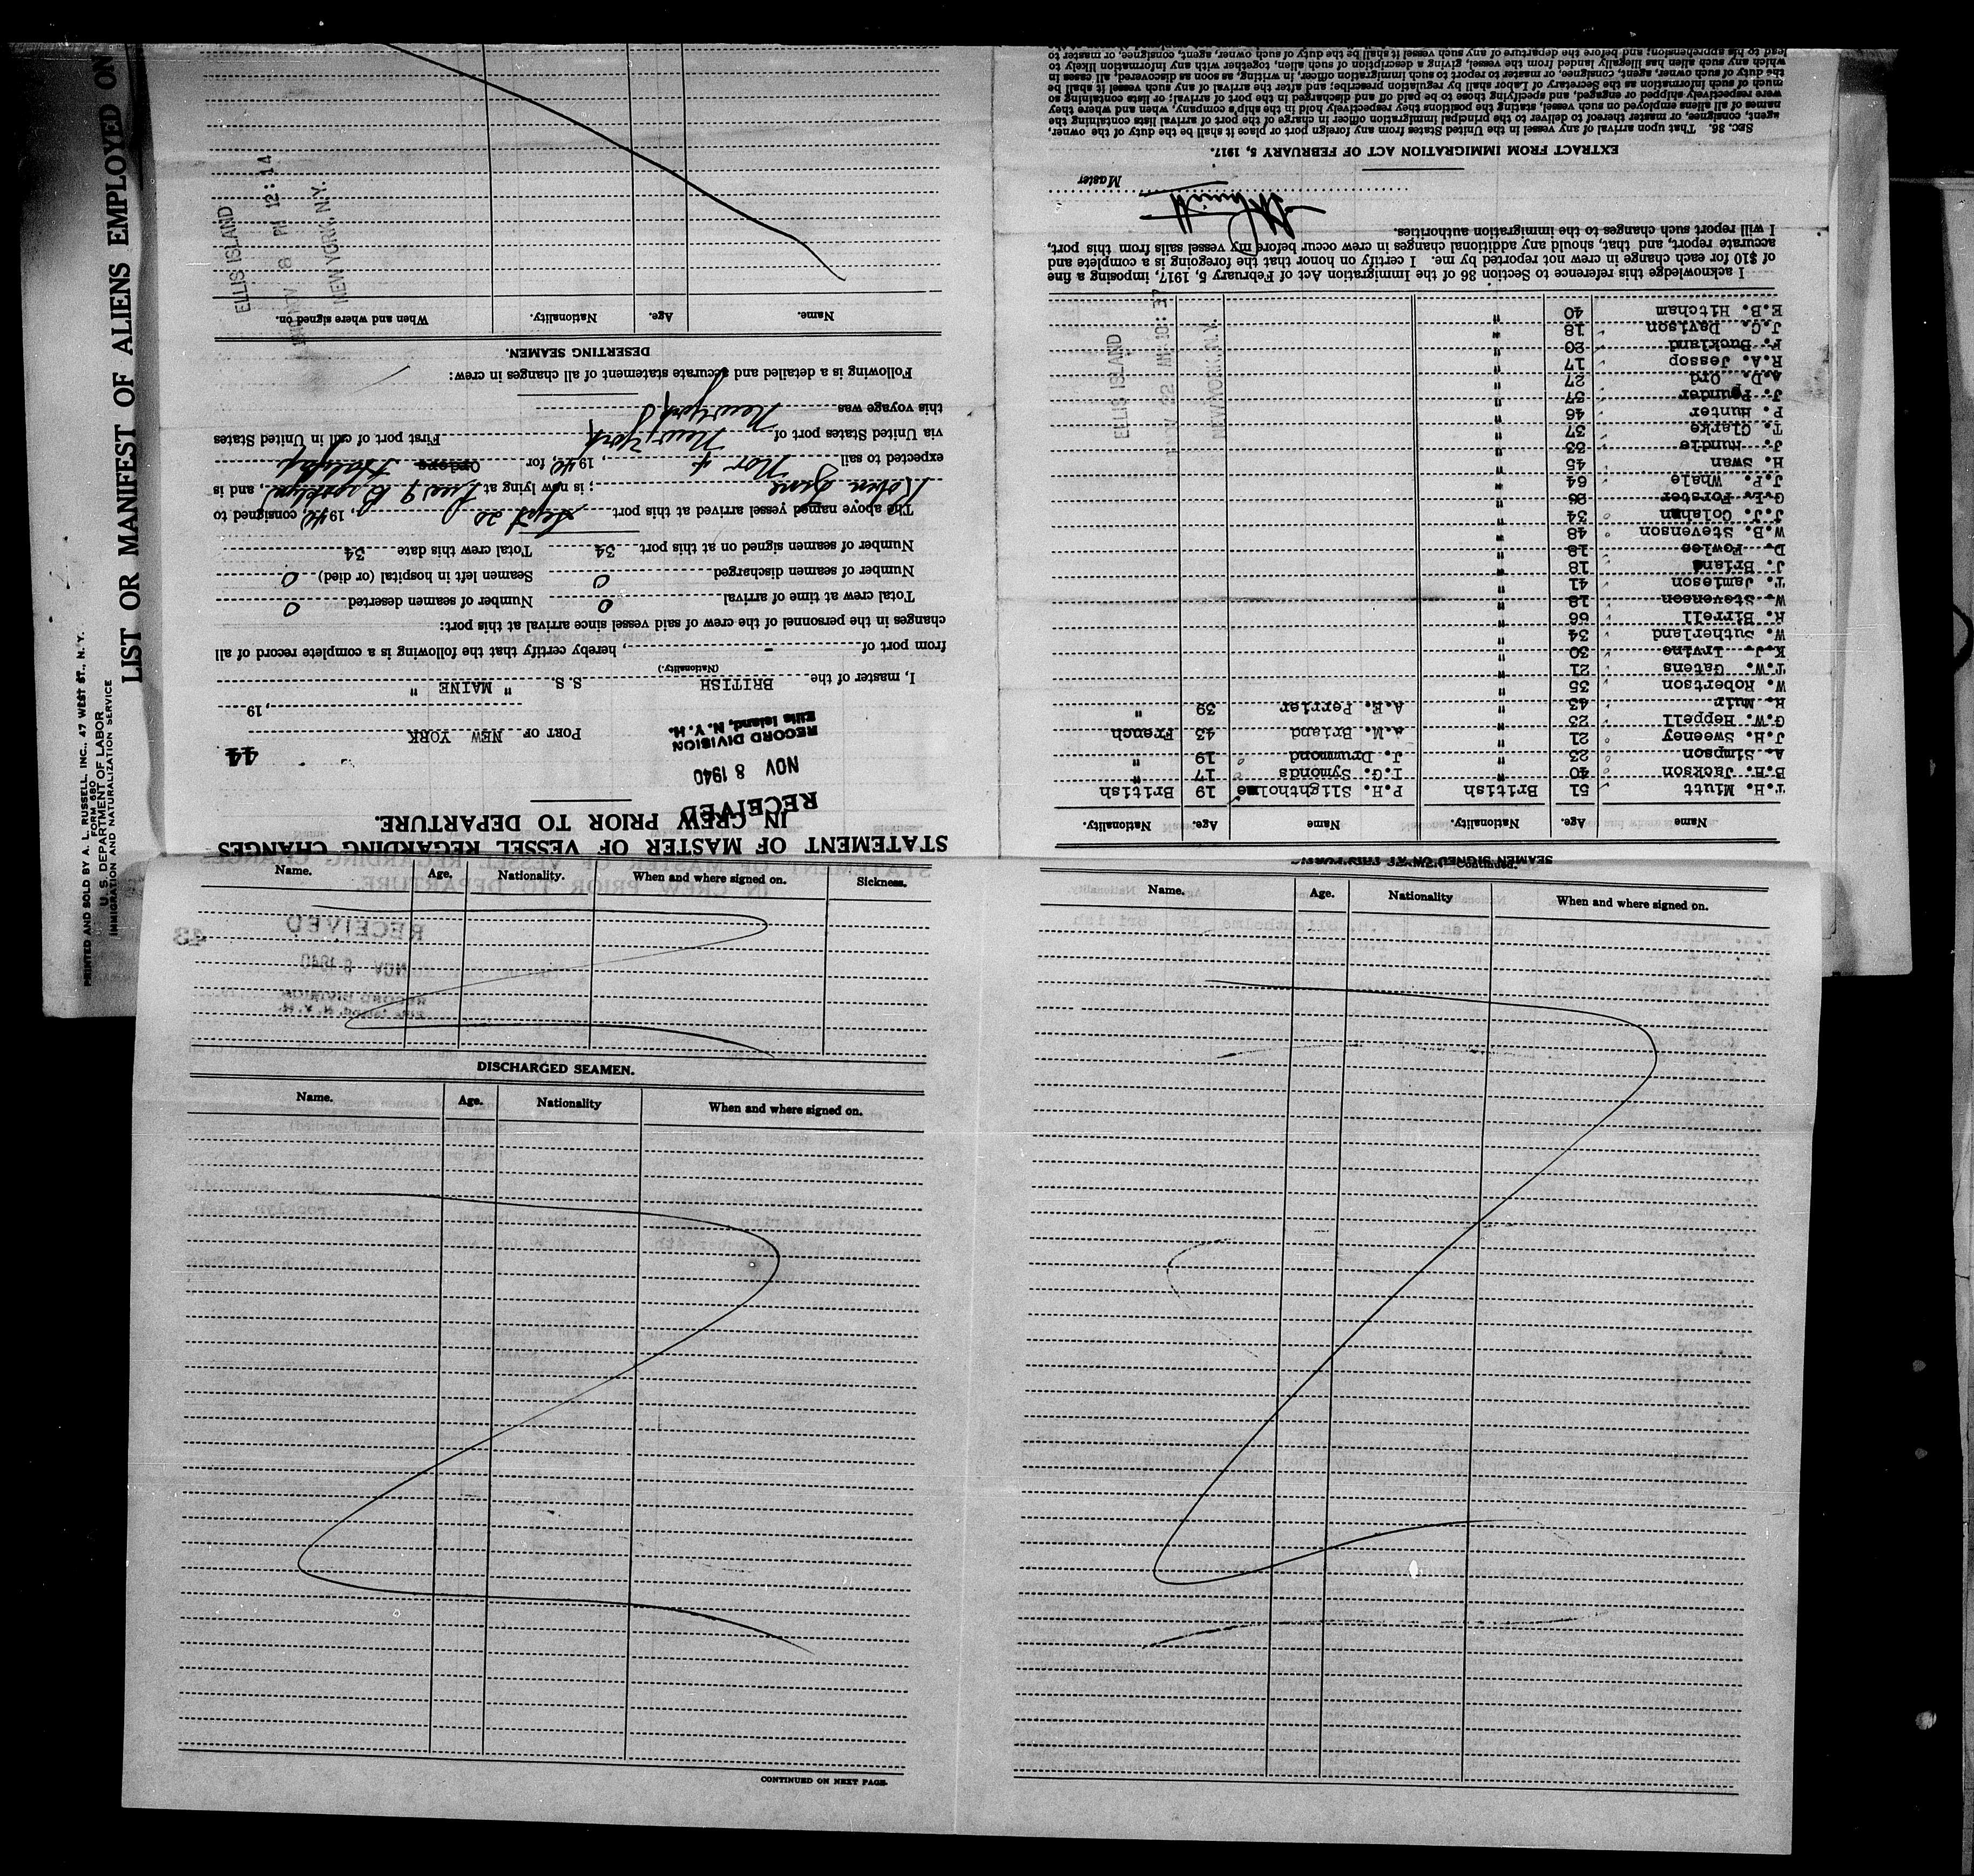 LIST OR MANIFEST OF ALIENS EMPLOYED ON
PRINTED AND SOLD BY A. L. RUSSELL, INC., 47 WEST ST., N. Y.
FORM 680
U. S. DEPARTMENT OF LABOR
IMMIGRATION AND NATURALIZATION SERVICE
STATEMENT OF MASTER OF VESSEL REGARDING CHANGES
IN CREW PRIOR TO DEPARTURE.
RECEIVED
NOV 8 1940
RECORD DIVISION
Ellis Island, N. Y. H.
44
PORT OF NEW YORK
, 19
I, master of the BRITISH S.S. " MAINE "
(Nationality.)
from port of - , hereby certify that the following is a complete record of all
changes in the personnel of the crew of said vessel since arrival at this port:
Total crew at time of arrival 0 Number of seamen deserted 0
Number of seamen discharged 0 Seamen left in hospital (or died) 0
Number of seamen signed on at this port 34 Total crew this date 34
The above named vessel arrived at this port Sept 20 , 1940, consigned to
Robin Line ; is now lying at Pier 9 Brooklyn , and is
expected to sail Nov 4 , 1940, for Orders Halifax
via United States port of New York First port of call in United States
this voyage was New York
Following is a detailed and accurate statement of all changes in crew:
DESERTING SEAMEN.
Name. Age. Nationality. When and where signed on.
ELLIS ISLAND
8 PM 12:14
NEW YORK, N.Y.
SEAMEN SIGNED ON AT THIS PORT
Name Age. Nationality. Name Age. Nationality.
T.H. Miutt 51 British P.H. Slightholme 19 British
B.H. Jackson 40 " I.G. Symonds 17 "
A. Simpson 23 " J. Drummond 19 "
J.H. Sweeney 21 " A.M. Briand 43 French
G.W. Heppell 23 " A.E. Perrier 39 "
R. Muir 43 "
W. Robertson 35 "
T.W. Gatens 21 "
K.J. Irvine 30 "
W. Sutherland 34 "
R. Birrell 66 "
W. Stevenson 19 "
T. Jamieson 41 "
J. Briand 18 "
D. Fowles 18 "
W.B. Stevenson 48 "
J.J. Colahan 34 "
G.E. Forster 26 "
J.P. Whale 64 "
H. Swan 45 "
J. Mundie 33 "
T. Clarke 37 "
P. Hunter 46 "
J. Pounder 37 "
A.D. Ord 27 "
R.A. Jessop 17 "
F. Buckland 20 "
J.C. Davison 18 "
E.B. Hitcham 40 "
ELLIS ISLAND
NOV 22 AM 10:37
NEW YORK, N.Y.
I acknowledge this reference to Section 36 of the Immigration Act of February 5, 1917, imposing a fine
of $10 for each change in crew not reported by me. I certify on honor that the foregoing is a complete and
accurate report, and that, should any additional changes in crew occur before my vessel sails from this port,
I will report such changes to the immigration authorities.
Master
EXTRACT FROM IMMIGRATION ACT OF FEBRUARY 5, 1917.
SEC. 36. That upon arrival of any vessel in the United States from any foreign port or place it shall be the duty of the owner,
agent, consignee, or master thereof to deliver to the principal immigration officer in charge of the port of arrival lists containing the
names of all aliens employed on such vessel, stating the positions they respectively hold in the ship's company, when and where they
were respectively shipped or engaged, and specifying those to be paid off and discharged in the port of arrival; or lists containing so
much of such information as the Secretary of Labor shall by regulation prescribe; and after the arrival of any such vessel it shall be
the duty of such owner, agent, consignee, or master to report to such immigration officer, in writing, as soon as discovered, all cases in
which any such alien has illegally landed from the vessel, giving a description of such alien, together with any information likely to
lead to his apprehension; and before the departure of any such vessel it shall be the duty of such owner, agent, consignee, or master to
Name. Age. Nationality. When and where signed on. Sickness.
DISCHARGED SEAMEN.
Name. Age. Nationality When and where signed on.
CONTINUED ON NEXT PAGE.
Continued.
Name. Age. Nationality When and where signed on.